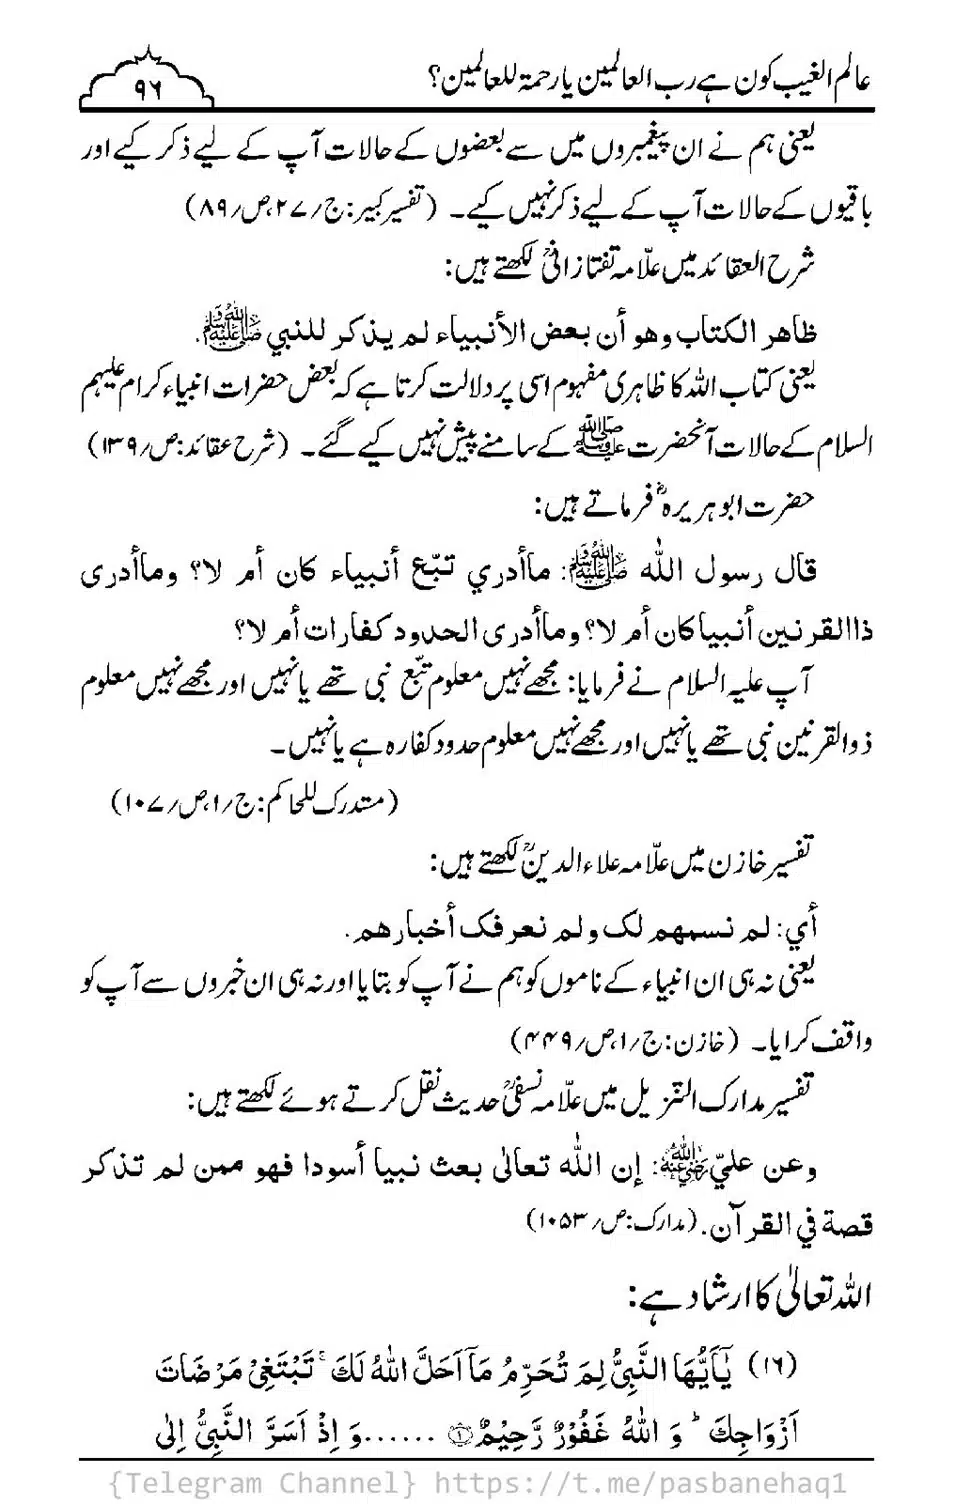 عالم الغیب کون ہے رب العالمین یا رحمۃ للعالمین؟
۹۶
یعنی ہم نے ان پیغمبروں میں سے بعضوں کے حالات آپ کے لیے ذکر کیے اور
باقیوں کے حالات آپ کے لیے ذکر نہیں کیے۔ (تفسیر کبیر: ج/۲۷، ص/۸۹)
شرح العقائد میں علّامہ تفتازانیؒ لکھتے ہیں:
ظاهر الكتاب وهو أن بعض الأنبياء لم يذكر للنبي ﷺ.
یعنی کتاب اللہ کا ظاہری مفہوم اسی پر دلالت کرتا ہے کہ بعض حضرات انبیاء کرام علیہم
السلام کے حالات آنحضرت ﷺ کے سامنے پیش نہیں کیے گئے۔ (شرح عقائد: ص/۱۳۹)
حضرت ابو ہریرہؓ فرماتے ہیں:
قال رسول الله ﷺ: ماأدري تبّع أنبياء كان أم لا؟ وماأدرى
ذاالقرنين أنبياكان أم لا؟ وماأدرى الحدود كفارات أم لا؟
آپ علیہ السلام نے فرمایا: مجھے نہیں معلوم تبّع نبی تھے یا نہیں اور مجھے نہیں معلوم
ذوالقرنین نبی تھے یا نہیں اور مجھے نہیں معلوم حدود کفارہ ہے یا نہیں۔
(متدرک للحاکم: ج/۱، ص/۱۰۷)
تفسیر خازن میں علّامہ علاء الدینؒ لکھتے ہیں:
أي: لم نسمهم لك ولم نعرفك أخبارهم.
یعنی نہ ہی ان انبیاء کے ناموں کو ہم نے آپ کو بتایا اور نہ ہی ان خبروں سے آپ کو
واقف کرایا۔ (خازن: ج/۱، ص/۴۴۹)
تفسیر مدارک التنزیل میں علّامہ نسفیؒ حدیث نقل کرتے ہوئے لکھتے ہیں:
وعن عليّ رضي الله عنه: إن الله تعالىٰ بعث نبيا أسودا فهو ممن لم تذكر
قصة في القرآن. (مدارک: ص/۱۰۵۳)
اللہ تعالیٰ کا ارشاد ہے:
(۱۶) يٰۤاَيُّهَا النَّبِيُّ لِمَ تُحَرِّمُ مَاۤ اَحَلَّ اللّٰهُ لَكَ ۚ تَبْتَغِيْ مَرْضَاتَ
اَزْوَاجِكَ ؕ وَ اللّٰهُ غَفُوْرٌ رَّحِيْمٌ ۝۱ ......وَ اِذْ اَسَرَّ النَّبِيُّ اِلٰى
{Telegram Channel} https://t.me/pasbanehaq1